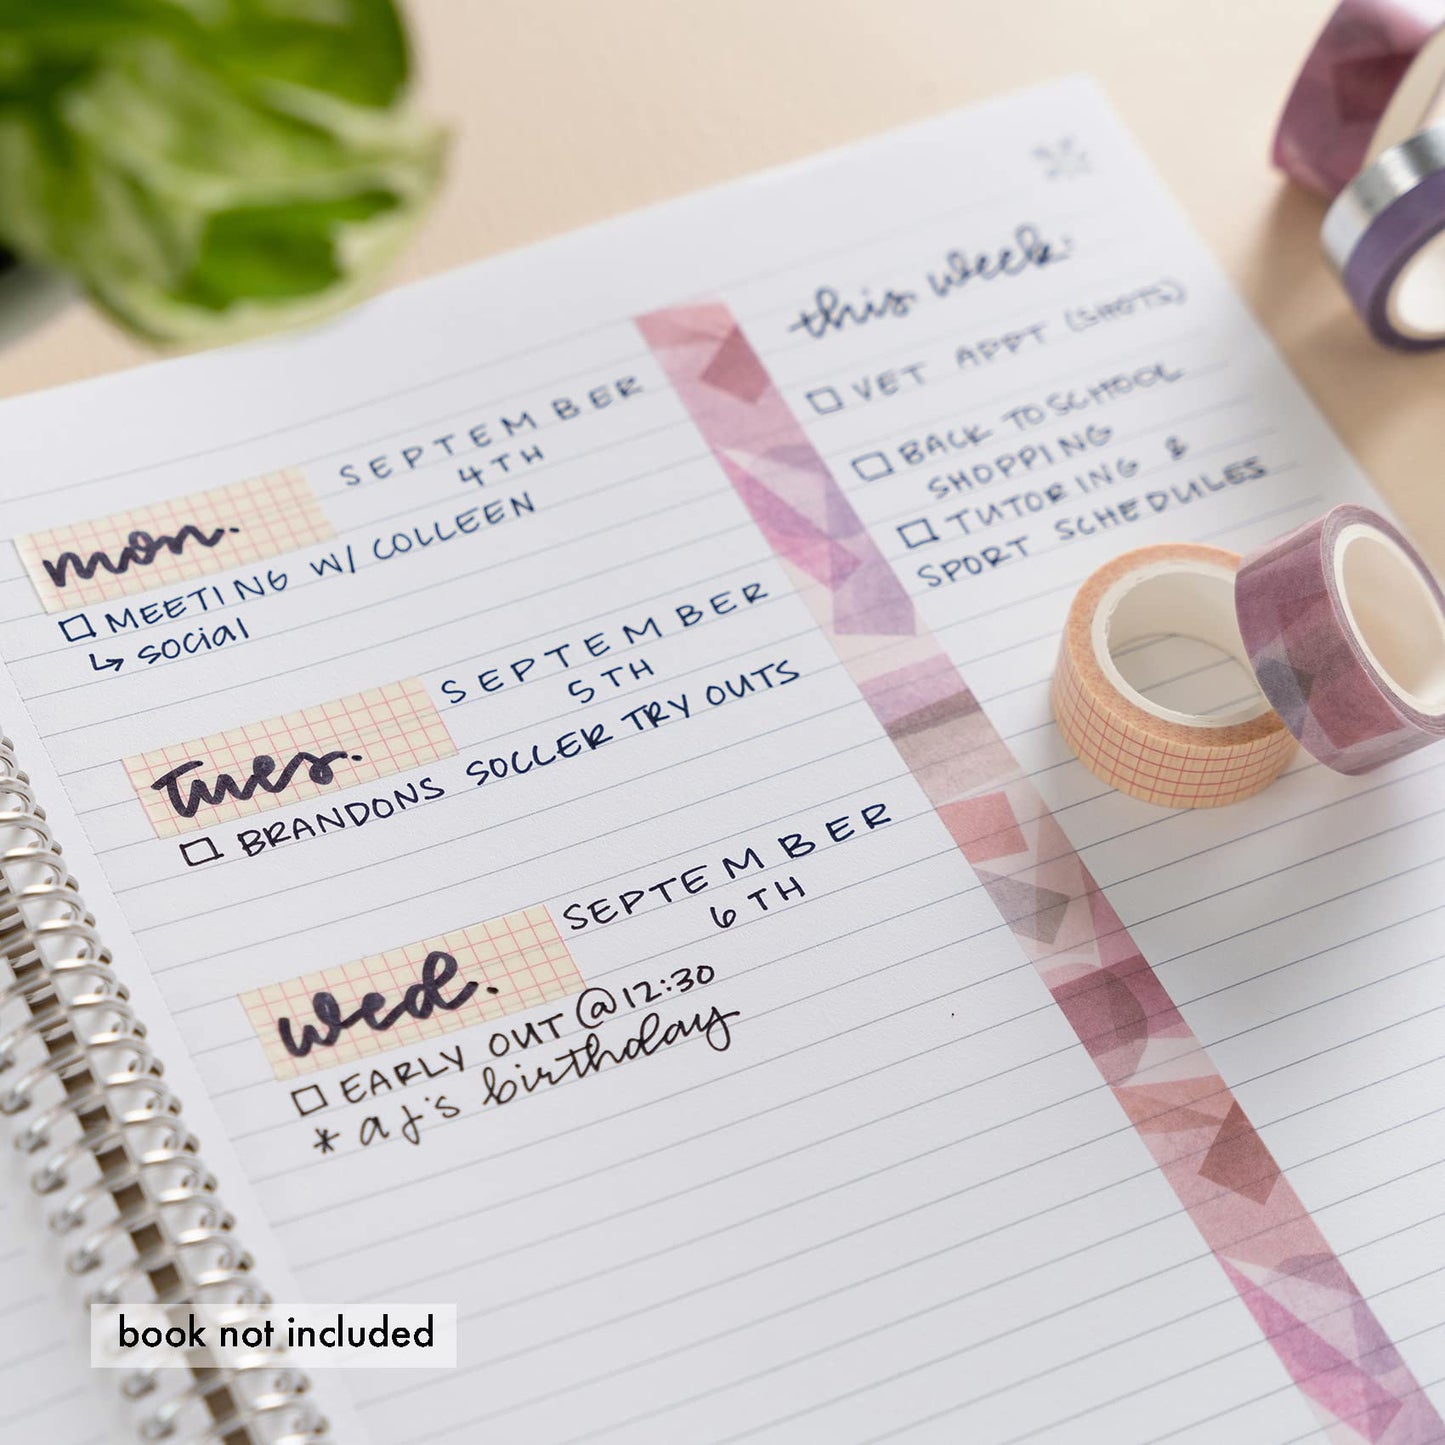 mon.
SEPTEMBER
4TH
☐ MEETING W/ COLLEEN
↳ social
tues.
SEPTEMBER
5TH
☐ BRANDONS SOCCER TRY OUTS
wed.
SEPTEMBER
6TH
☐ EARLY OUT @ 12:30
* aj's birthday
this week:
☐ VET APPT (SHOTS)
☐ BACK TO SCHOOL
SHOPPING
☐ TUTORING &
SPORT SCHEDULES
book not included